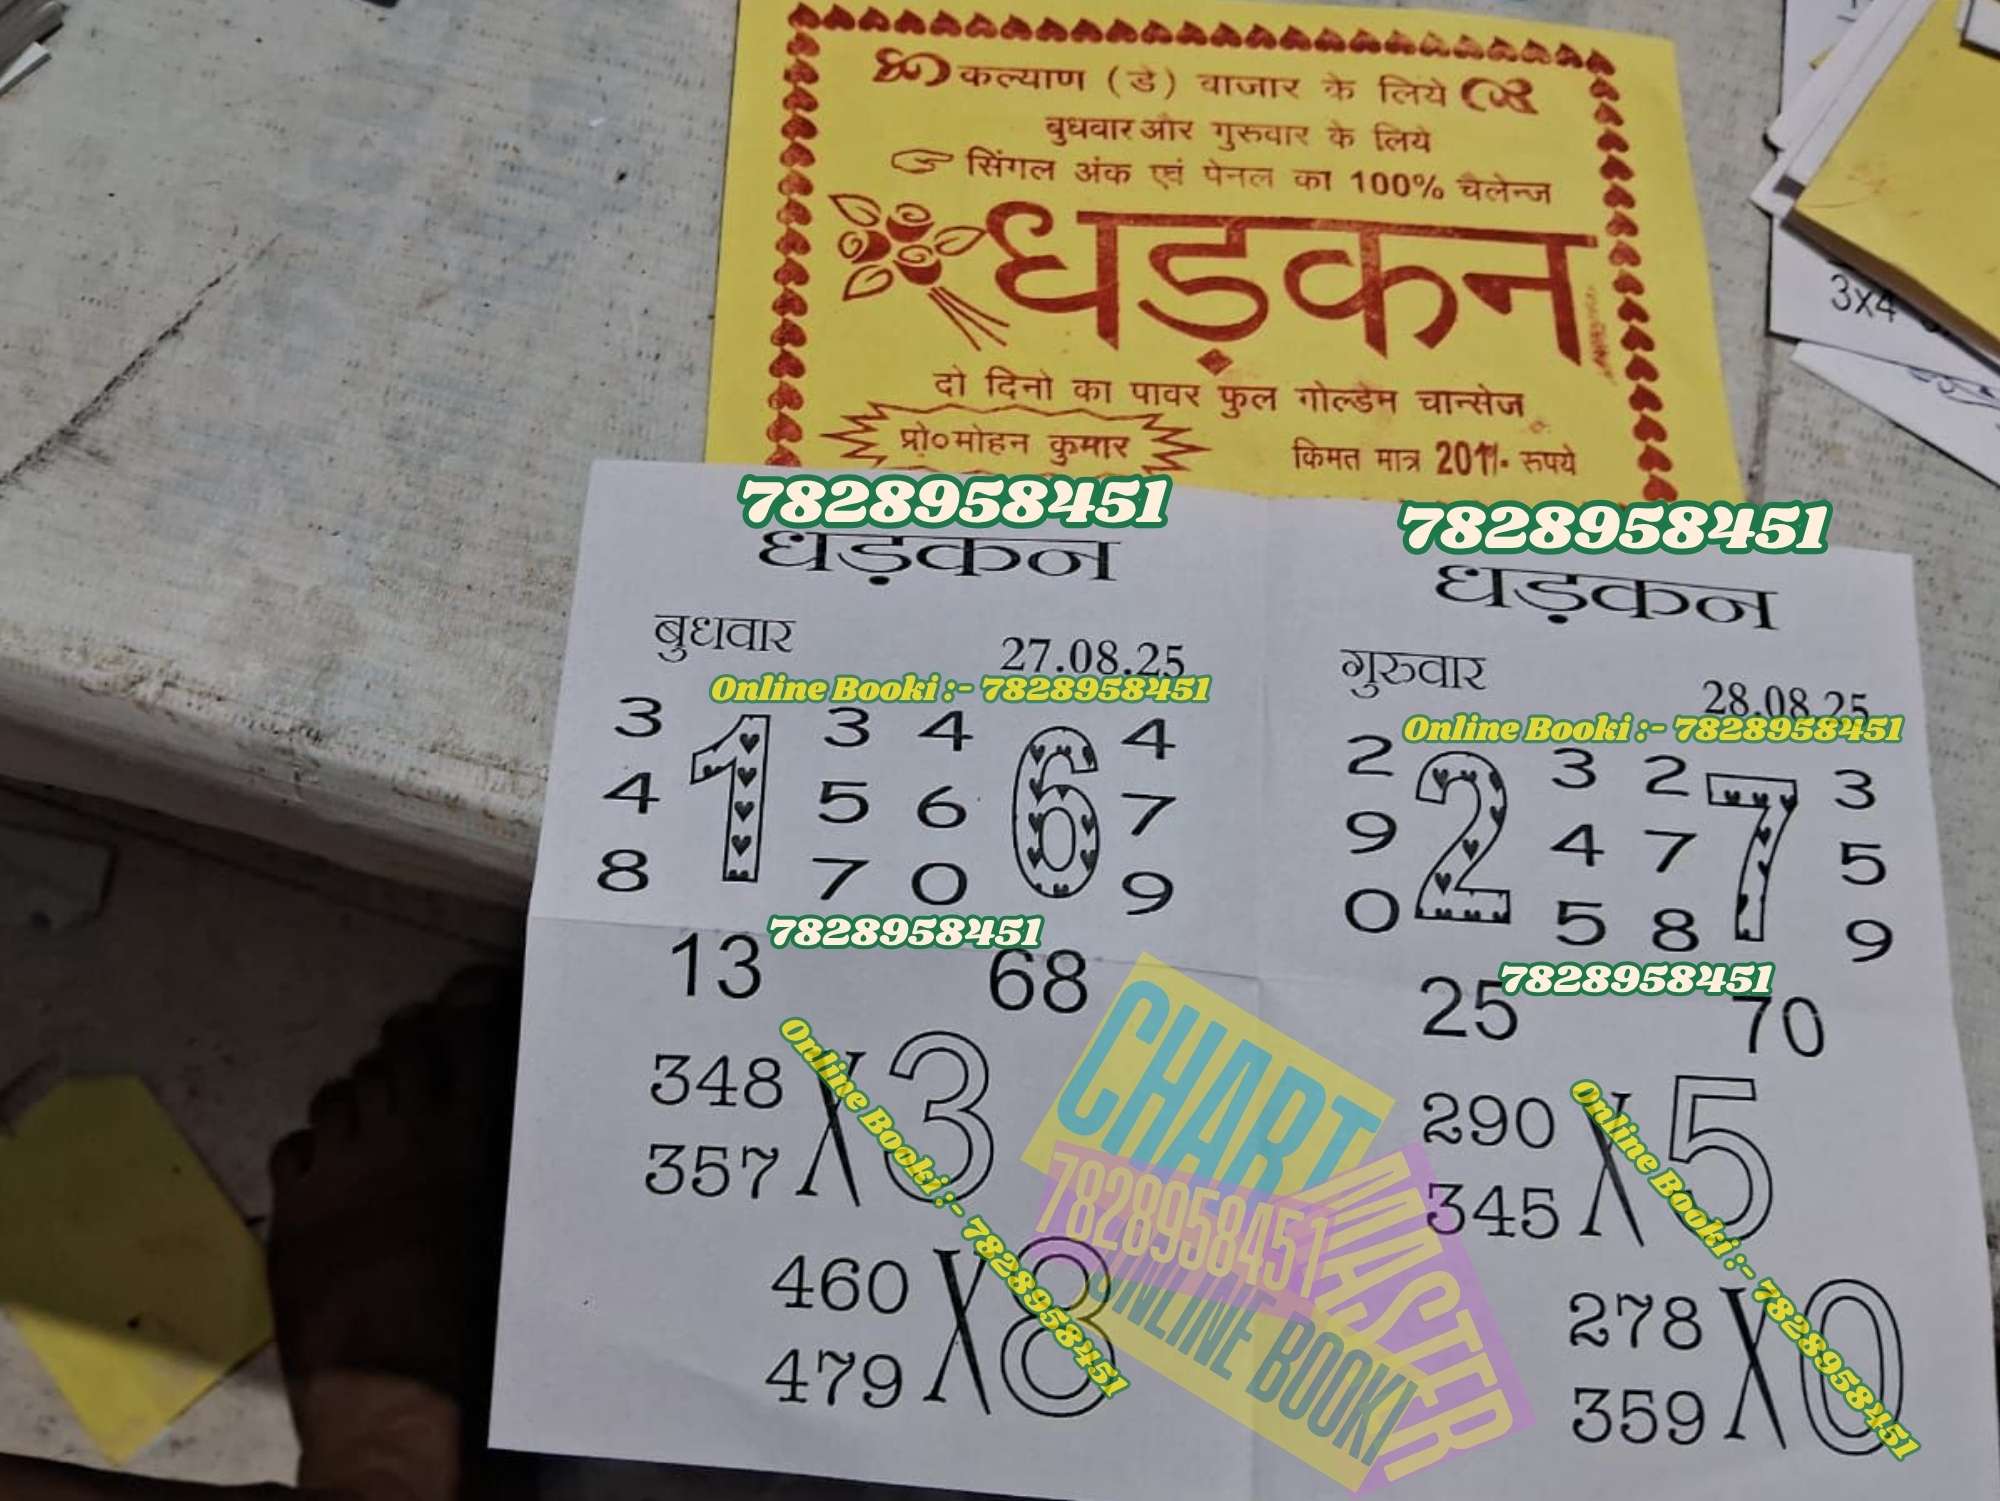 कल्याण (डे) वाजार के लिये
बुधवार और गुरुवार के लिये
सिंगल अंक एवं पेनल का 100% चैलेन्ज
धड़कन
दो दिनो का पावर फुल गोल्डेन चान्सेज
प्रो०मोहन कुमार
किमत मात्र 201/- रूपये
3x4
7828958451
धड़कन
बुधवार
27.08.25
Online Booki :- 7828958451
3 3 4 4
4 1 5 6 6 7
8 7 0 9
7828958451
13 68
348
357 X 3
Online Booki :- 7828958451
460
479 X 8
7828958451
धड़कन
गुरुवार
28.08.25
Online Booki :- 7828958451
2 3 2 3
9 2 4 7 7 5
0 5 8 9
7828958451
25 70
290
345 X 5
Online Booki :- 7828958451
278
359 X 0
CHART
MASTER
7828958451
ONLINE BOOKI